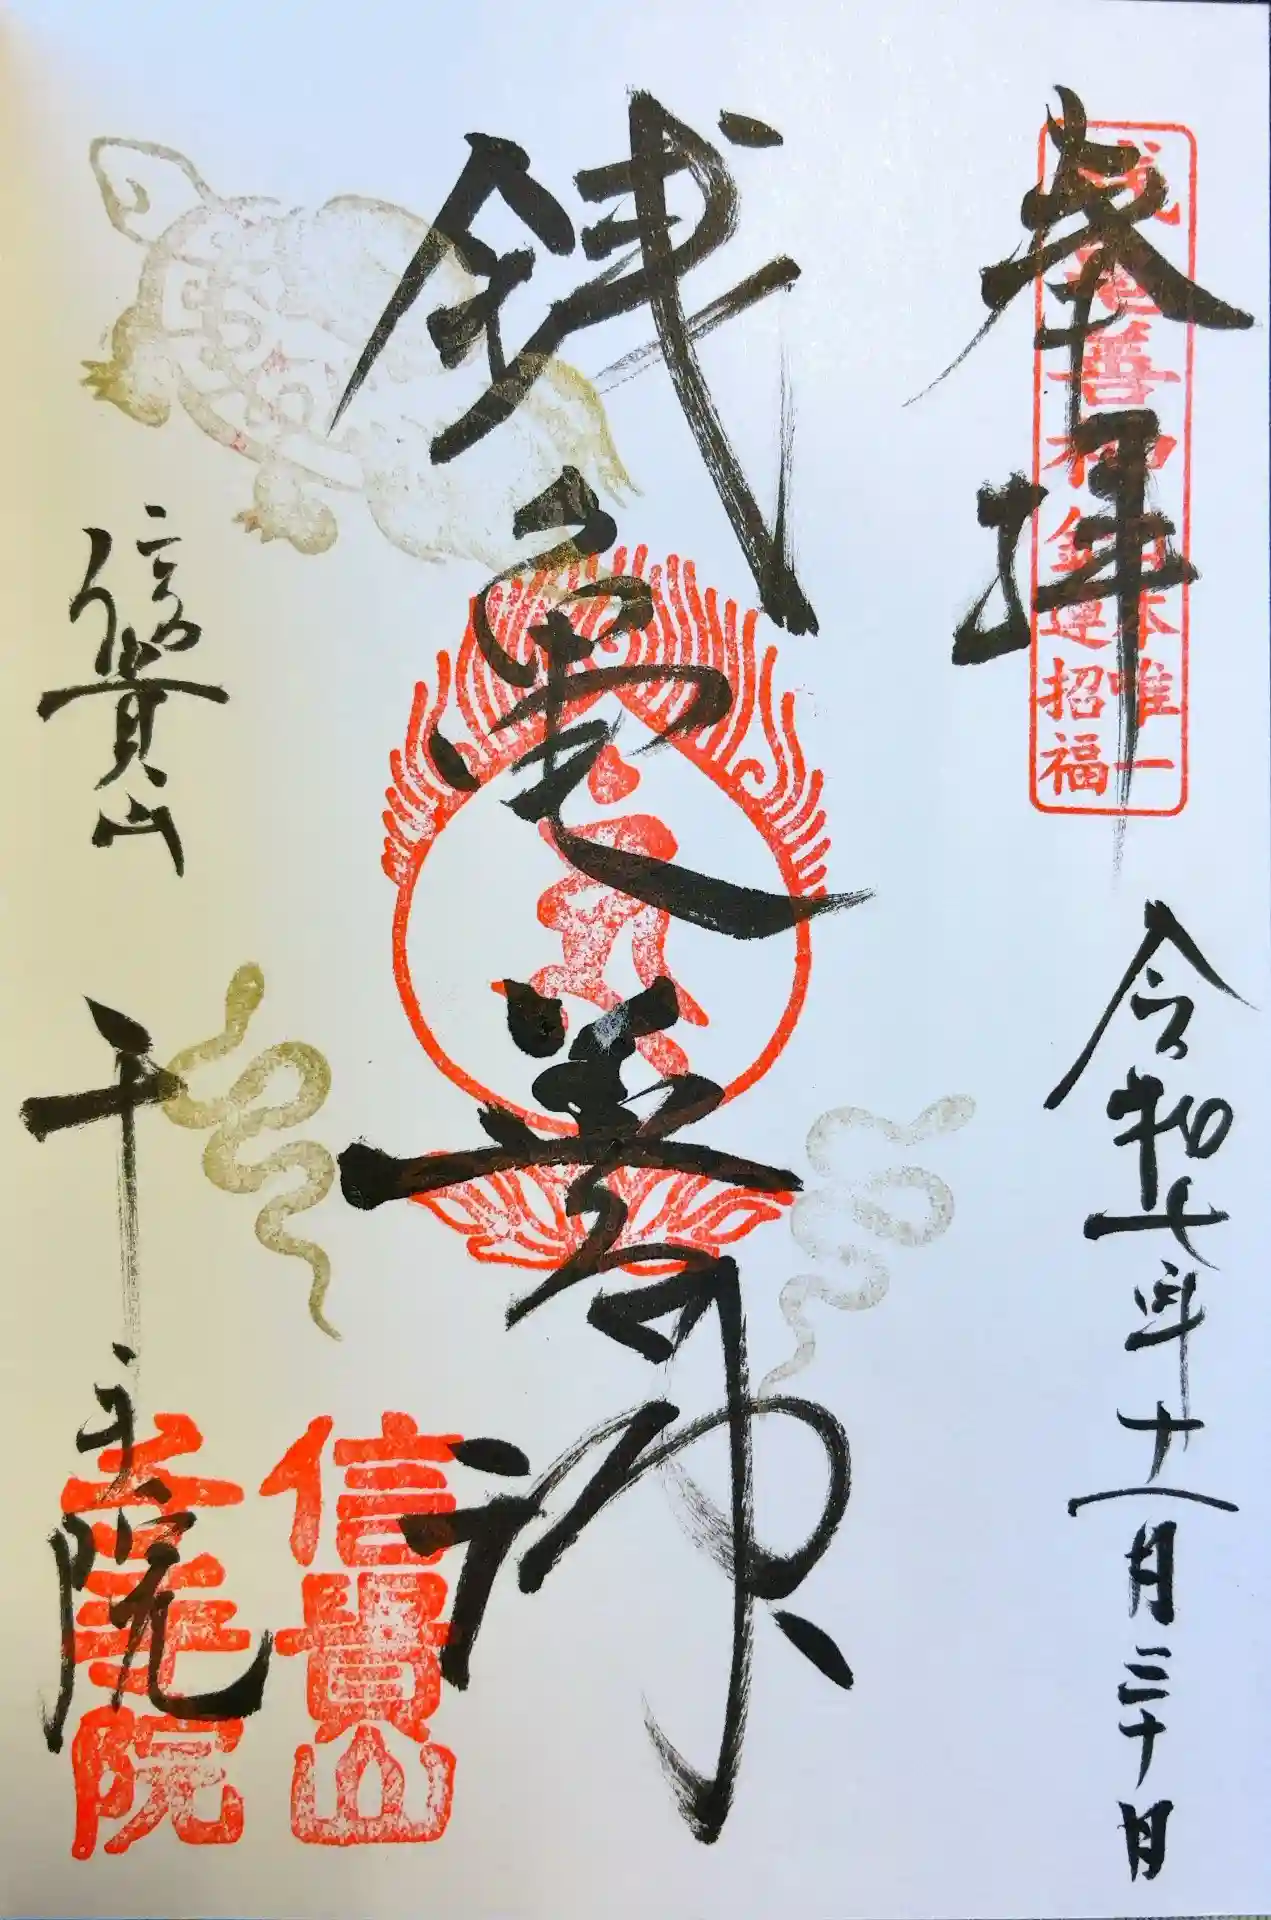 奉拝
日本唯一
銭亀善神 金運招福
令和七年十一月三十日
銭亀善神
信貴山
千手院
信貴山
千手院